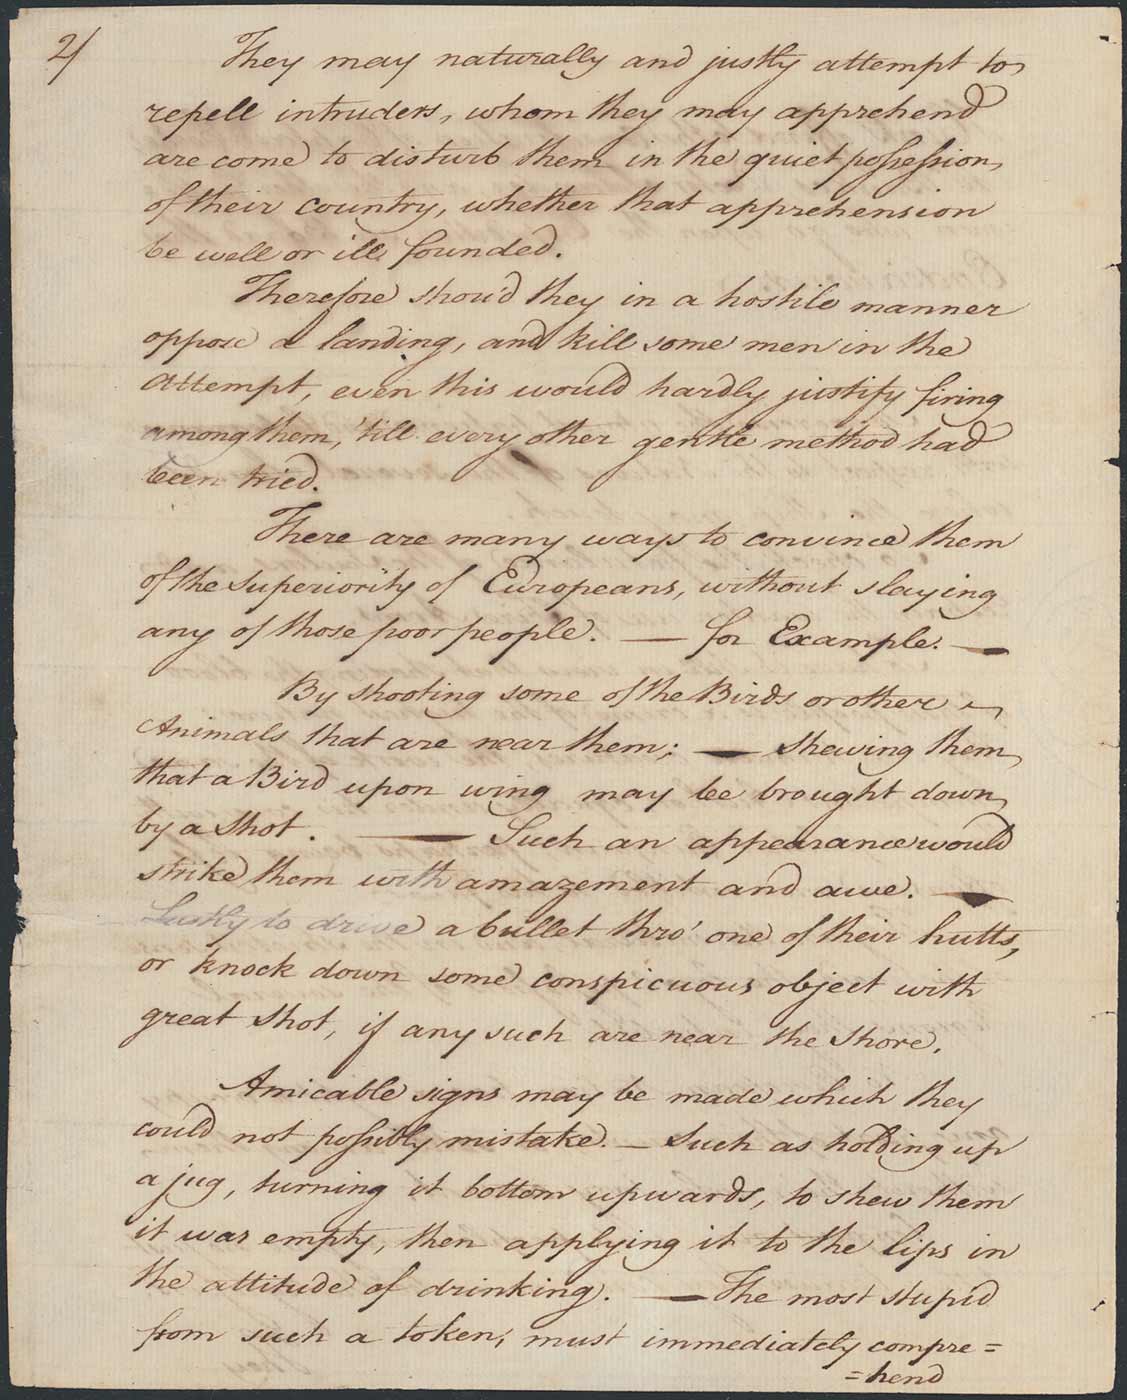 2/
They may naturally and justly attempt to
repell intruders, whom they may apprehend
are come to disturb them in the quiet possession
of their country, whether that apprehension
be well or ill founded.
Therefore shou'd they in a hostile manner
oppose a landing, and kill some men in the
attempt, even this would hardly justify firing
among them, 'till every other gentle method had
been tried.
There are many ways to convince them
of the Superiority of Europeans, without slaying
any of those poor people. — for Example. —
By shooting some of the Birds or other
Animals that are near them; — Shewing them
that a Bird upon wing may be brought down
by a Shot. — Such an appearance would
strike them with amazement and awe. —
Lastly to drive a bullet thro' one of their hutts,
or knock down some conspicuous object with
great Shot, if any such are near the Shore.
Amicable signs may be made which they
could not possibly mistake. — Such as holding up
a jug, turning it bottom upwards, to shew them
it was empty, then applying it to the lips in
the attitude of drinking. — The most stupid
from such a token, must immediately compre=
=hend